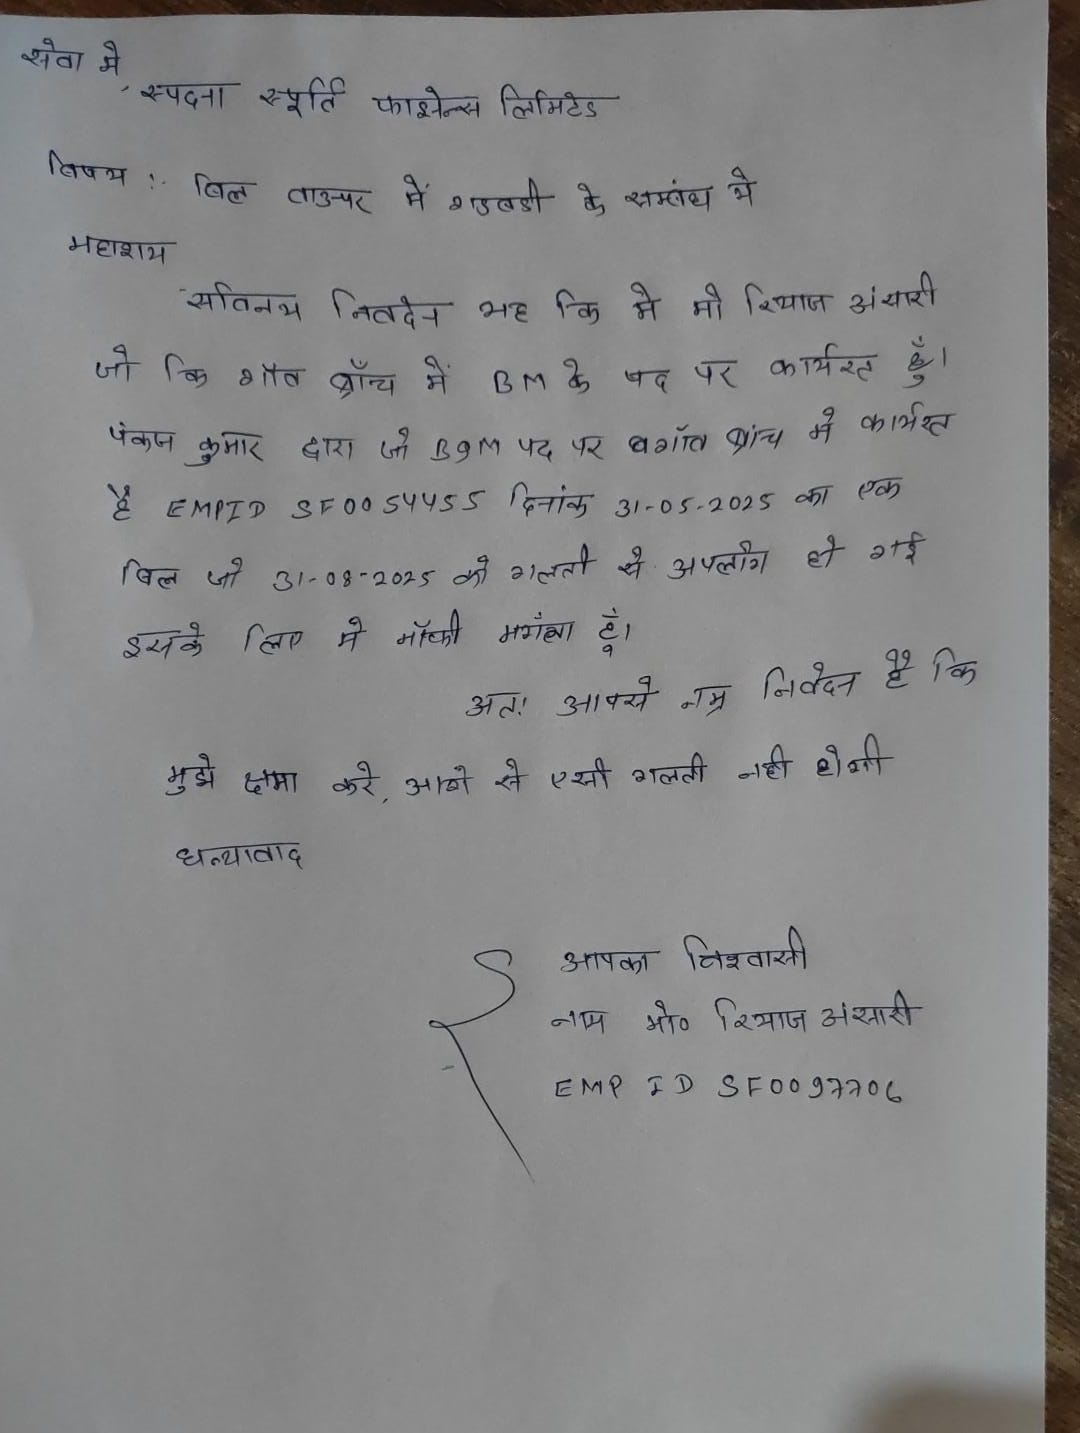 सेवा मे,
स्पदना स्पूर्ति फाइनेन्स लिमिटेड
विषय :- बिल वाउचर में गडबडी के सम्बंध मे
महाशय
सविनय निवदेन यह कि मे मो रियाज अंसारी
जो कि गॉव ब्राँच में BM के पद पर कार्यरत हूँ।
पंकज कुमार द्वारा जो BQM पद पर ब्रांच मे कार्यरत
है EMPID SF0054455 दिनांक 31-05-2025 का एक
बिल जो 31-08-2025 को गलती से अपलोग हो गई
इसके लिए मे मॉफी हूँ।
अतः आपसे नम्र निवेदन है कि
मुझे क्षमा करे, आगे से एसी गलती नही होगी
धन्यावाद
आपका विश्वासी
नाम मो० रियाज अंसारी
EMP ID SF0097706